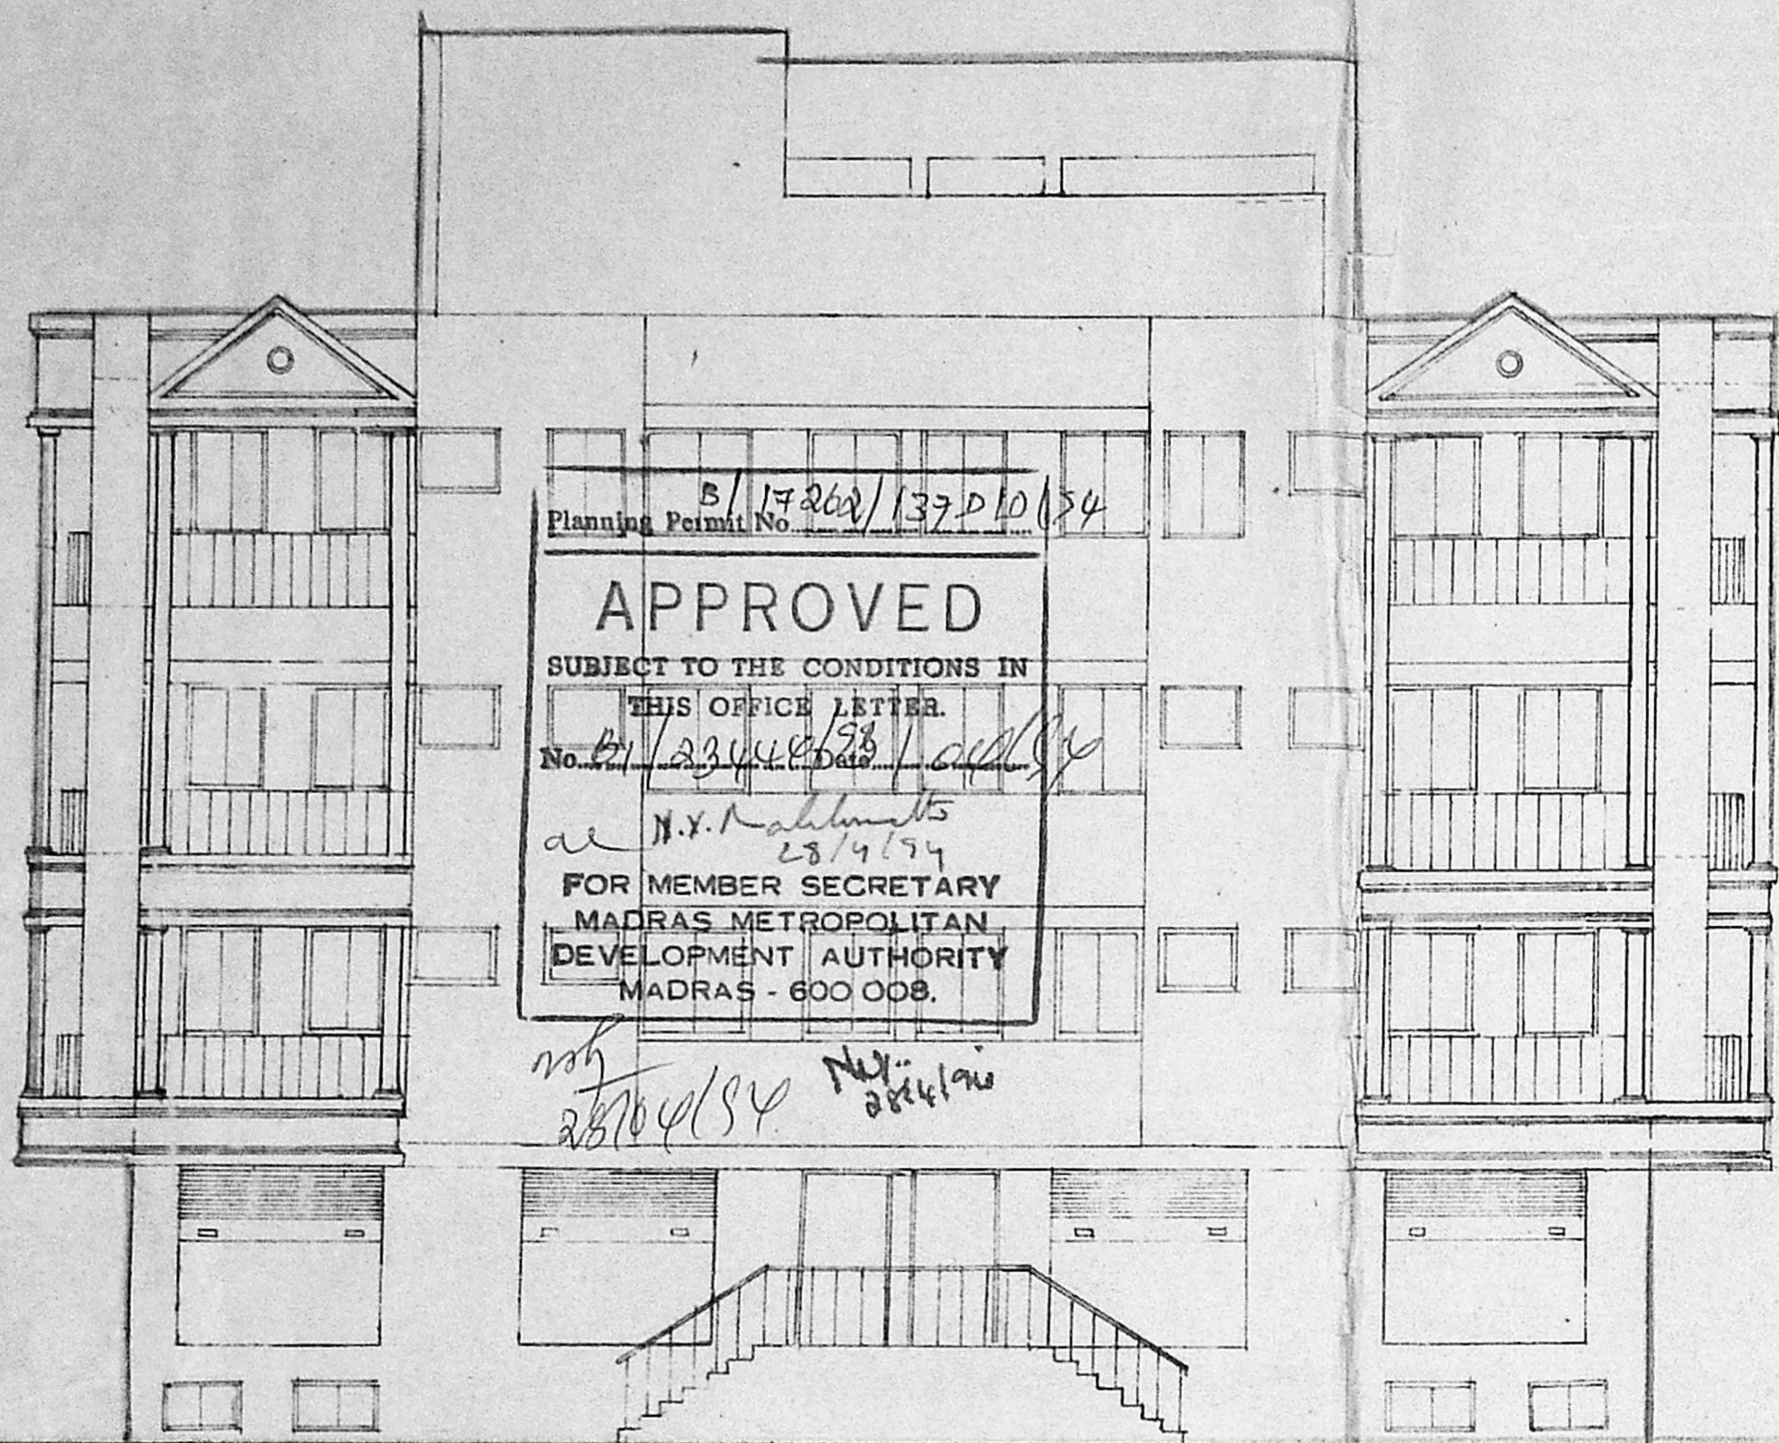 Planning Permit No. B/17262/137D10/94
APPROVED
SUBJECT TO THE CONDITIONS IN
THIS OFFICE LETTER.
No. B1/23444/93 Date /04/94
N.Y.
28/4/94
FOR MEMBER SECRETARY
MADRAS METROPOLITAN
DEVELOPMENT AUTHORITY
MADRAS - 600 008.
28/04/94
28/4/94